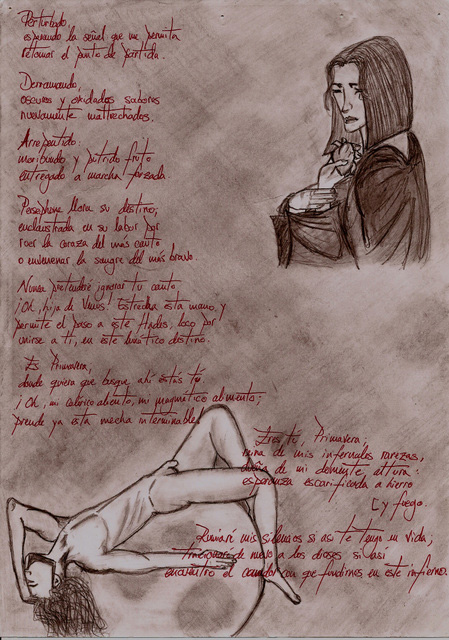 Perturbado,
esperando la señal que me permita
retomar el punto de partida.
Derramando,
oscuros y oxidados sabores
nuevamente maltrechados.
Arrepentido:
moribundo y pútrido fruto
entregado a marcha forzada.
Persephone llora su destino;
enclaustrada en su labor por
roer la coraza del mas cauto
o envenenar la sangre del más bravo.
Nunca pretenderé ignorar tu canto
¡Oh, hija de Venus! Estrecha esta mano y
permite el paso a este Hades, loco por
unirse a ti, en este lunático destino.
Es Primavera,
donde quiera que busque, ahí estás tú
¡Oh, mi calórico aliento, mi magmático alimento;
prende ya esta mecha interminable!
Eres tú, Primavera;
reina de mis infernales rarezas,
dueña de mi demente altura:
esperanza escarificada a hierro
[y fuego.
Rumiaré mis silencios si asi te tengo en vida,
traicionaré de nuevo a los dioses si así
encuentro el con que fundirnos en este infierno.